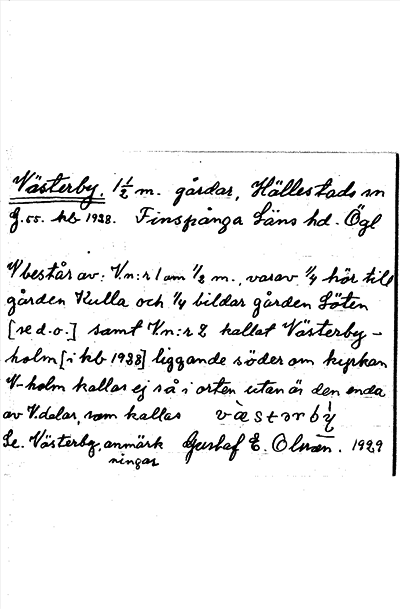 Västerby, 1½ m. gårdar, Hällestads sn
g.55. kb 1938. Finspånga Läns hd. Ögl
V består av: V.n:r 1 om ½ m., varav ¼ hör till
gården Kulla och ¼ bildar gården Löten
[se d.o.] samt V.n:r 2 kallat Västerby-
holm [i kb 1938] liggande söder om kyrkan
V-holm kallas ej så i orten utan är den enda
av V.delar, som kallas västərbỳ
Se. Västerby, anmärk Gustaf E. Olsson. 1929
ningar